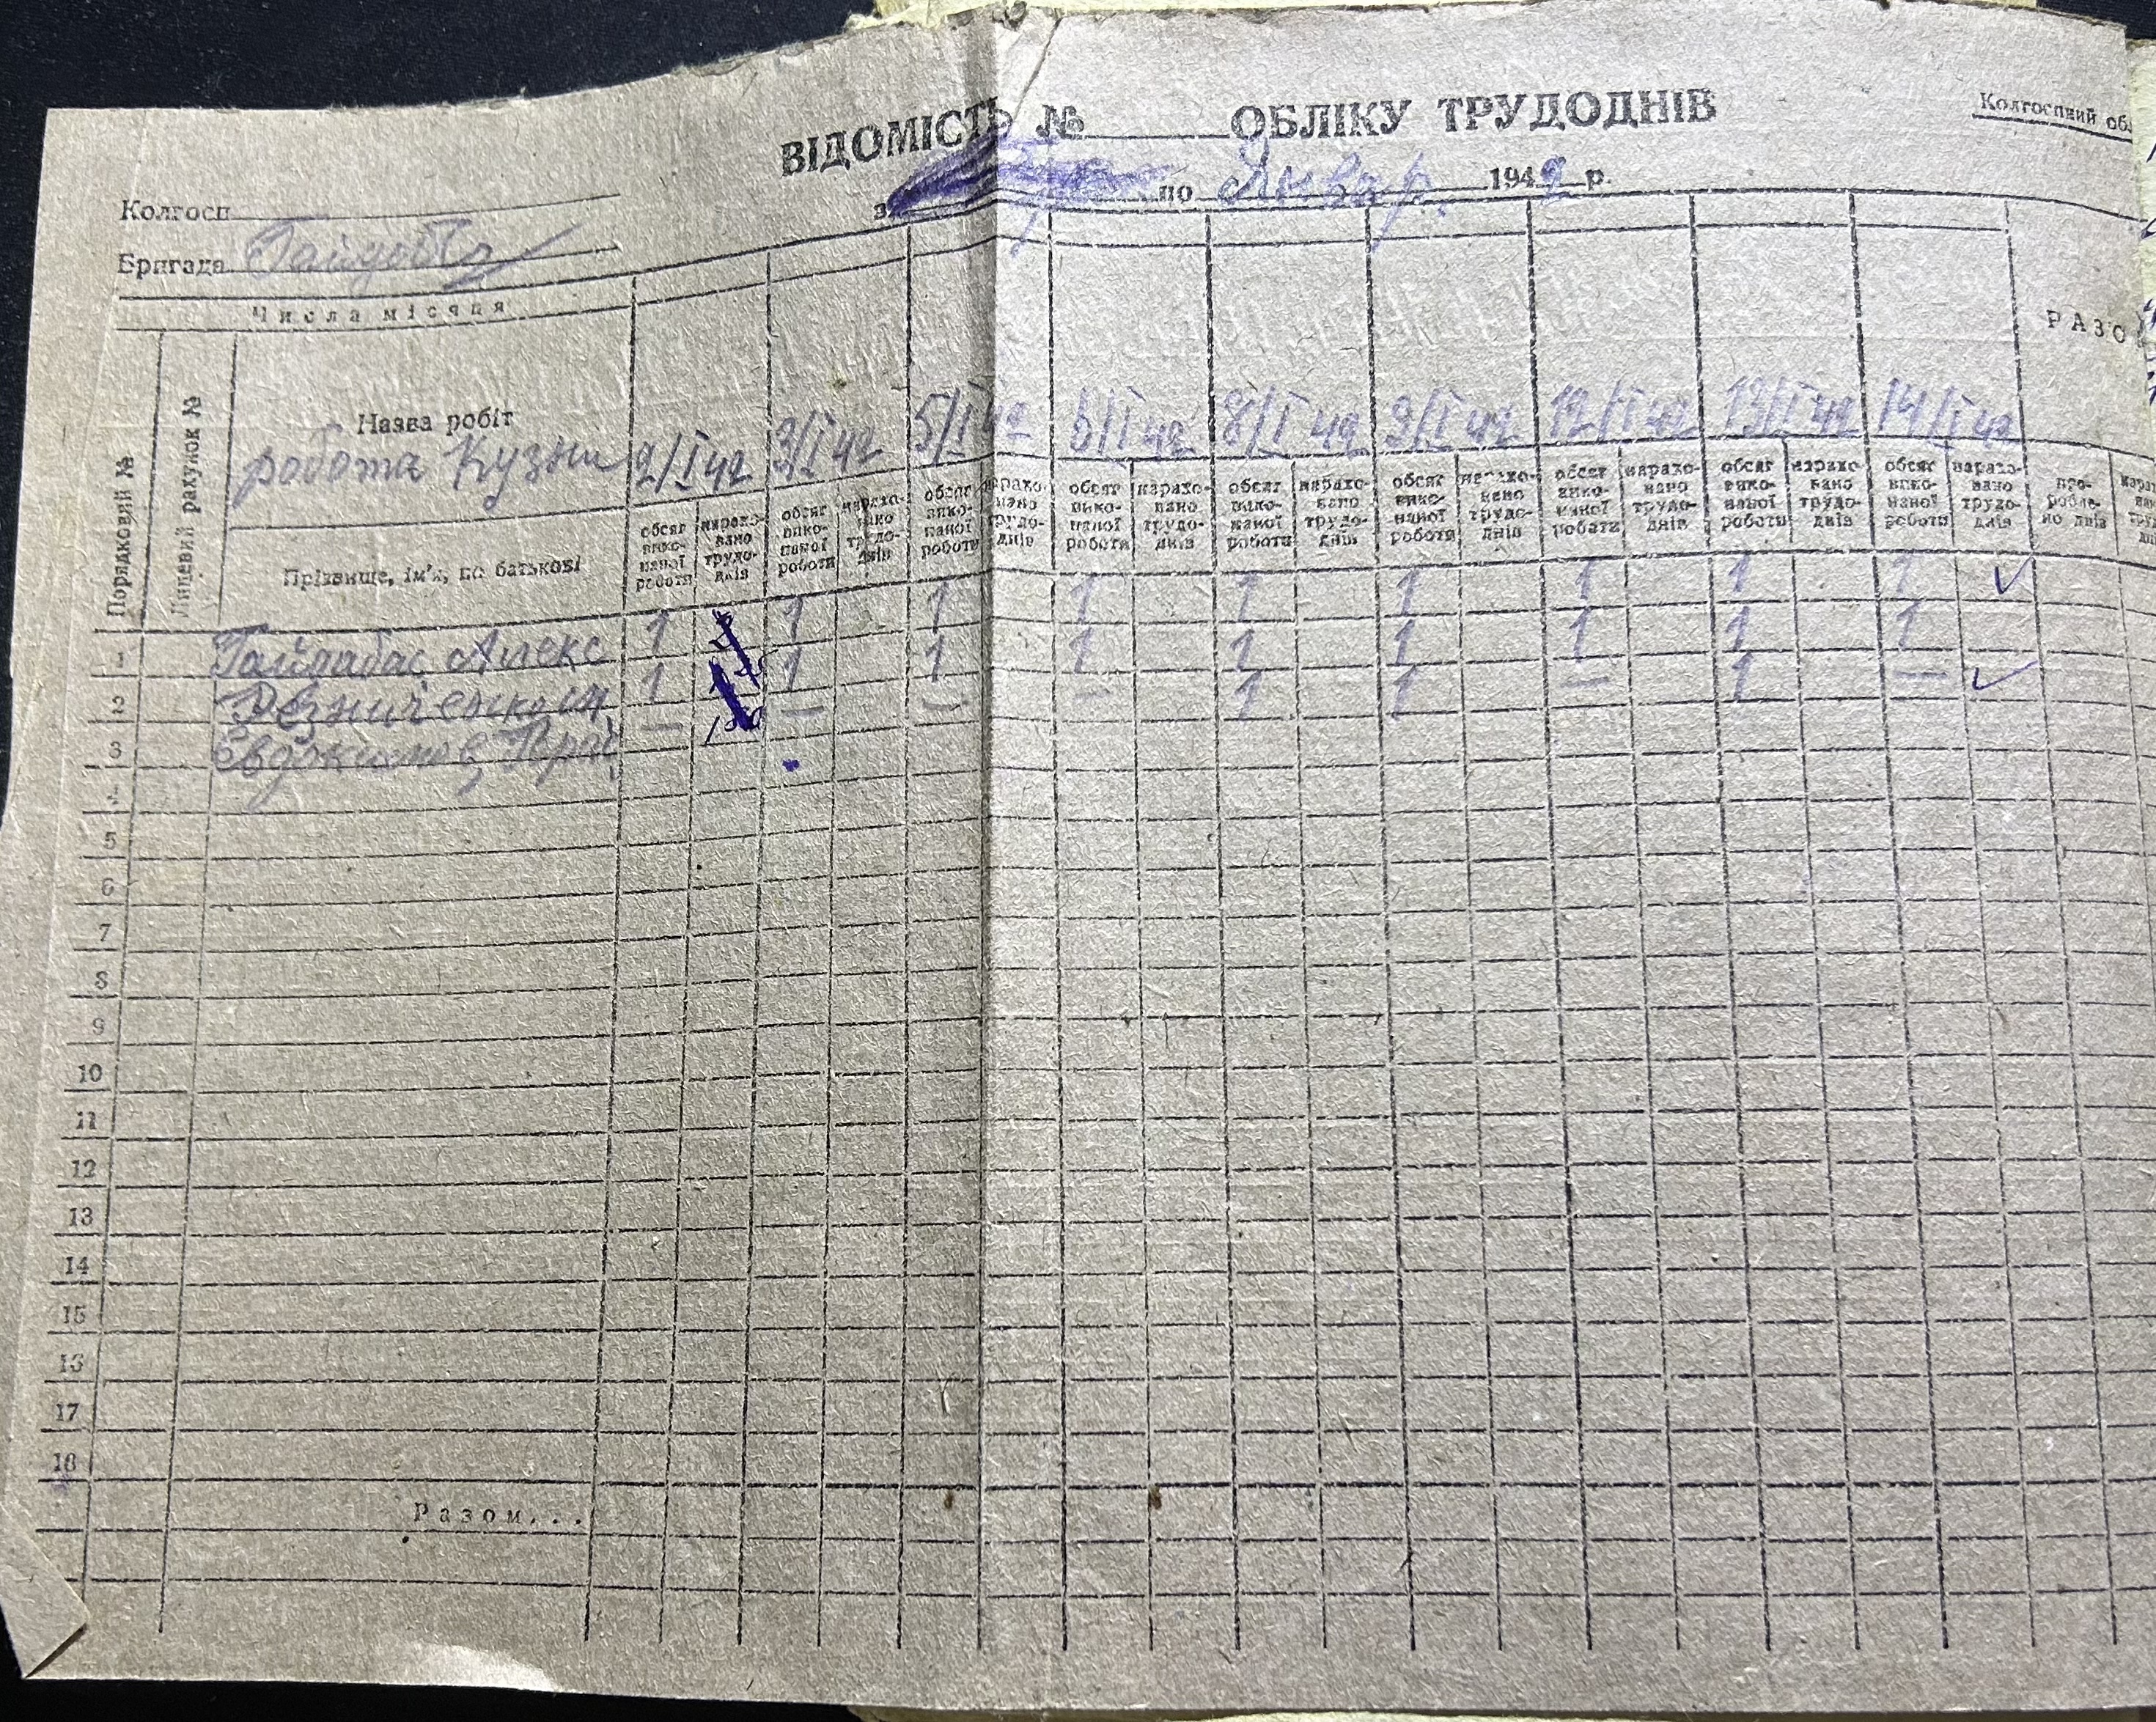 ВІДОМІСТЬ № ОБЛІКУ ТРУДОДНІВ
Колгоспний об
з по Январ 1942 р.
Колгосп
Бригада
Числа місяця
РАЗО
Порядковий №
Лицевий рахунок №
Назва робіт
работа Кузни 2/I 42 3/I 42 5/I 42 6/I 42 8/I 42 9/I 42 12/I 42 13/I 42 14/I 42
Прізвище, ім'я, по батькові
обсяг виконаної роботи нараховано трудоднів обсяг виконаної роботи нараховано трудоднів обсяг виконаної роботи нараховано трудоднів обсяг виконаної роботи нараховано трудоднів обсяг виконаної роботи нараховано трудоднів обсяг виконаної роботи нараховано трудоднів обсяг виконаної роботи нараховано трудоднів обсяг виконаної роботи нараховано трудоднів обсяг виконаної роботи нараховано трудоднів пророблено днів
1 Гайдабас Алекс 1 1 1 1 1 1 1 1 1 ✓
2 1 1 1 1 1 1 1 1 1
3 Евдокимов — — — — 1 1 — 1 — ✓
4
5
6
7
8
9
10
11
12
13
14
15
16
17
18
Разом...